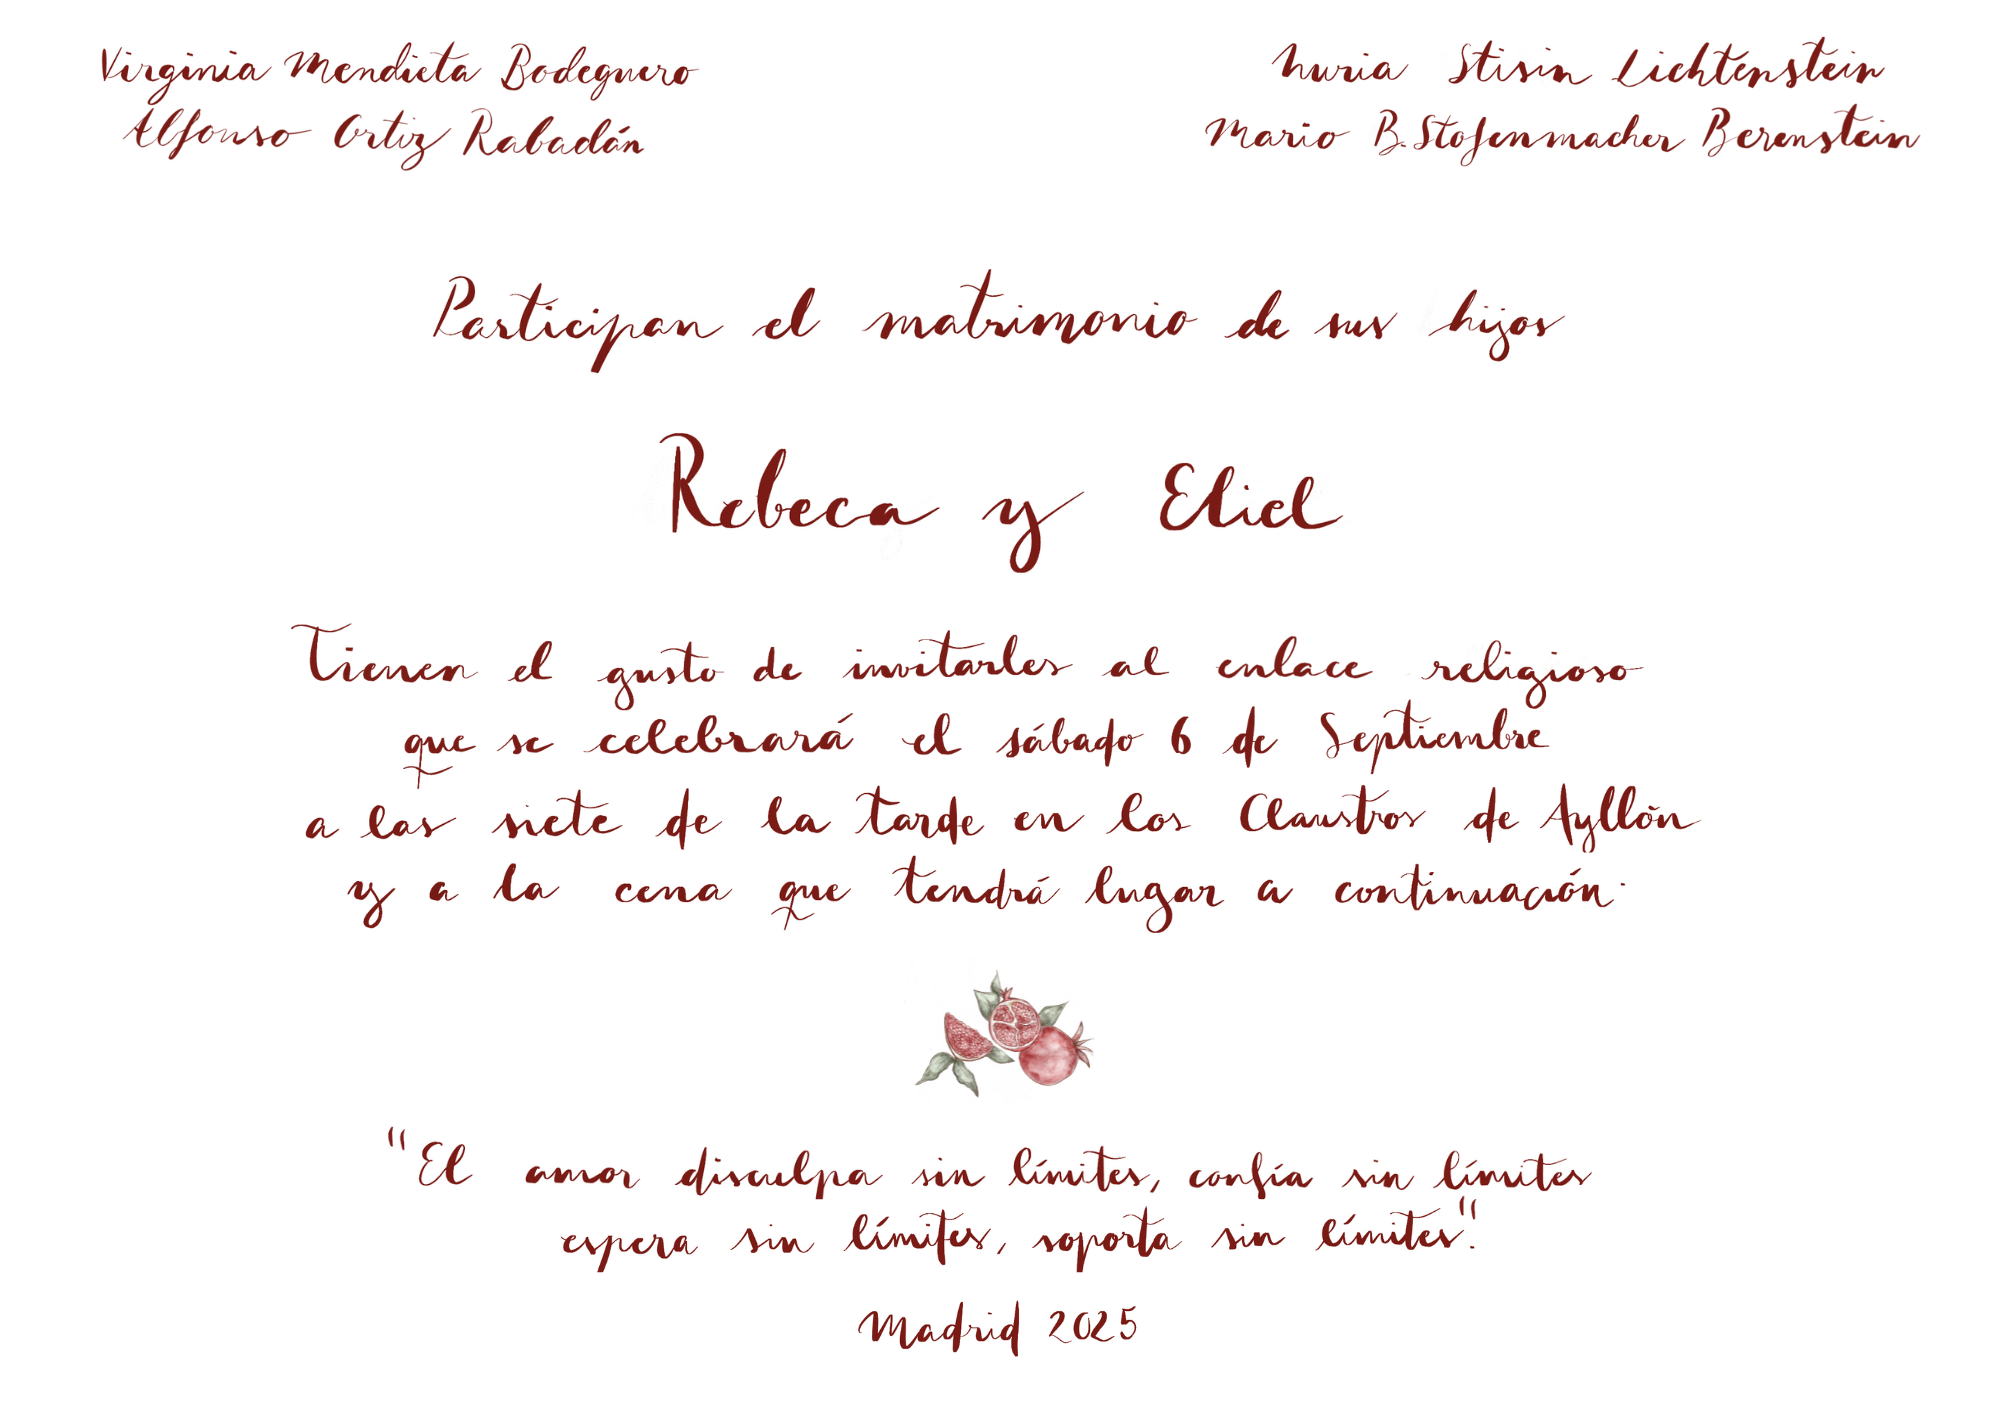 Virginia Mendieta Bodeguero
Alfonso Ortiz Rabadán
Nuria Stisin Lichtenstein
Mario B. Stofenmacher Berenstein
Participan el matrimonio de sus hijos
Rebeca y Eliel
Tienen el gusto de invitarles al enlace religioso
que se celebrará el sábado 6 de Septiembre
a las siete de la tarde en los Claustros de Ayllón
y a la cena que tendrá lugar a continuación.
"El amor disculpa sin límites, confía sin límites
espera sin límites, soporta sin límites".
Madrid 2025